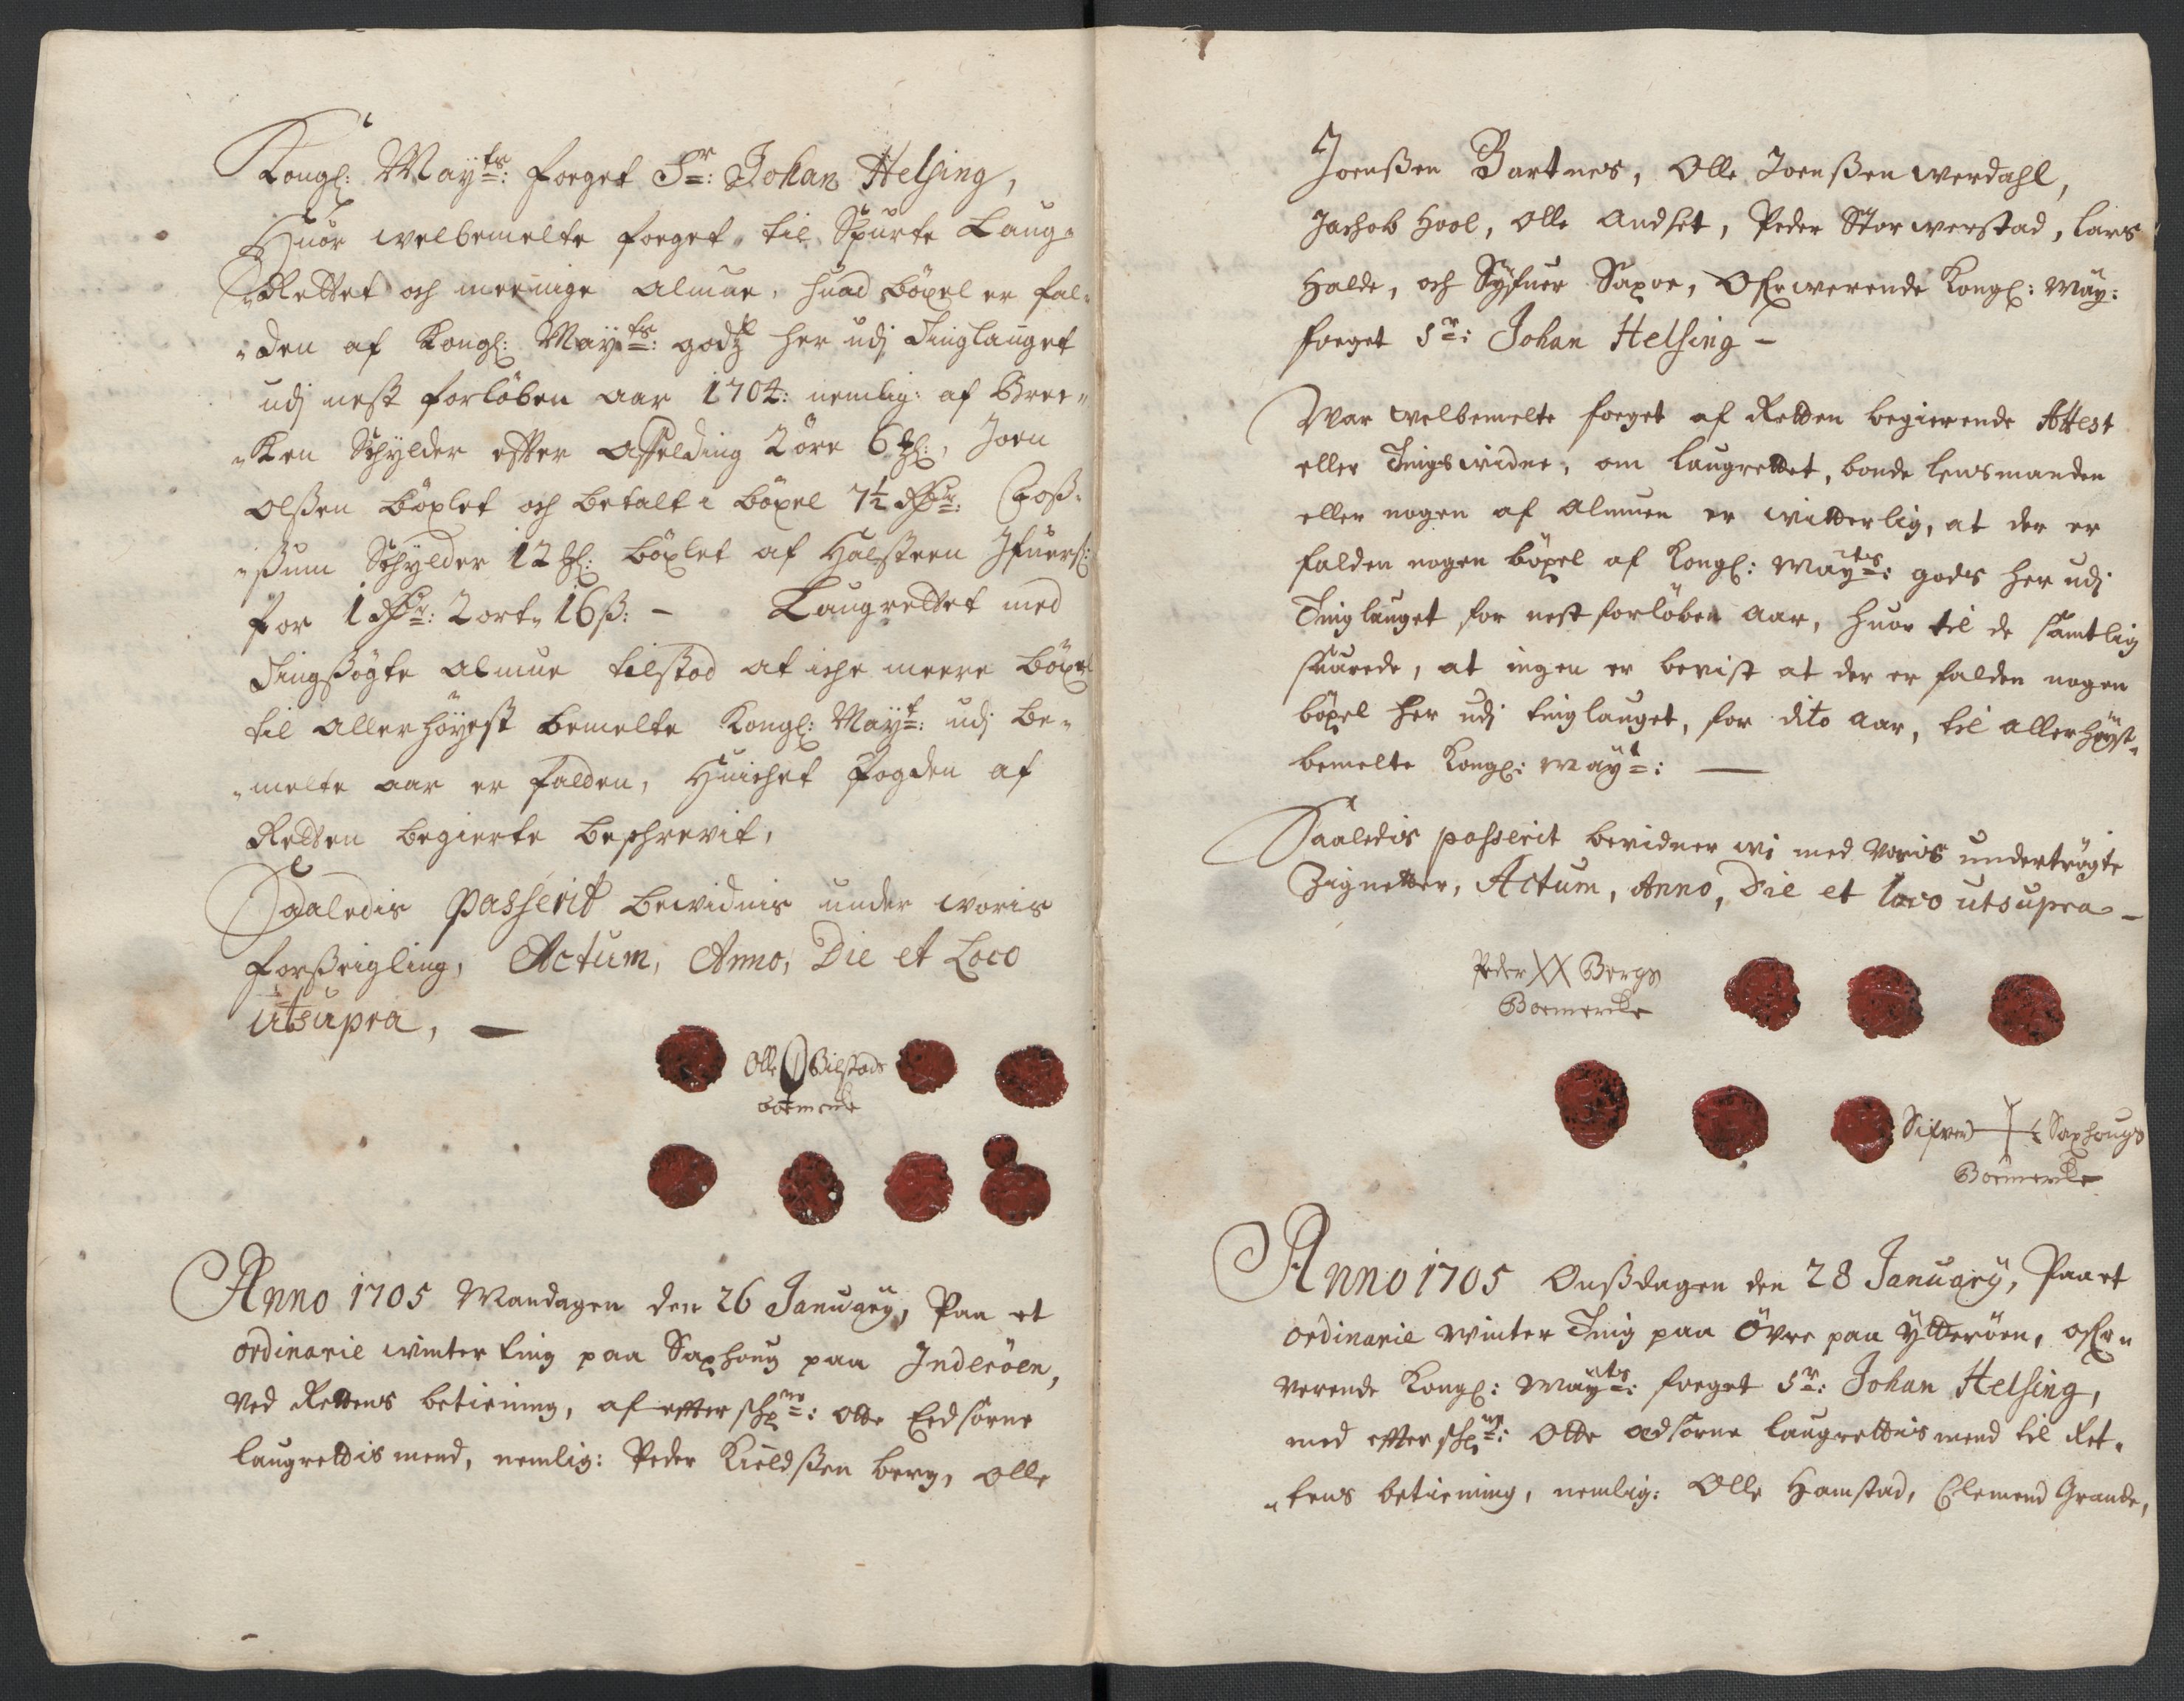 Kongl: May:ts: foeget Sr: Johan Helsing,
Huor welbemelte foeget til Spurte Laug-
Rettet och meenige almue, huad böxel er fal-
den af Kongl: May:ts: godtz her udj Tinglauget
udj nest forlöben aar 1704: nemlig: af Bree-
ken Schylder effter affelding 2 öre 6 , Joen
olßen böxlet och betalt i böxel 7½ Rdr:
ßum Schylder 12 böxlet af Halsteen Ifuers:
for 1 Rdr: 2 ort, 16 ß: – Laugrettet med
Tingßögte almue tilstod at iche meere böxel
til allerhöyest bemelte Kongl: Mayt: udj be-
melte aar er falden, Huichet fogden af
Retten begierte beschrevit,
Saaledis passerit bewidnis under woris
forßeigling, Actum, Anno, Die et Loco
utsupra, –
Olle Bilstads
boemerke
Anno 1705 Mandagen den 26 January, Paa et
ordinarie winter ting paa Saxhoug paa Inderöen,
ved Rettens betiening, af effterschne: otte Eedsorne
laugrettis mend, nemlig: Peder Kieldßen berg, olle
Joenßen Bartnes, Olle Joenßen werdahl,
Jachob Hool, olle andset, Peder Storwerstad, Lars
Halde, och Syfuer Saxoe, Ofr werende Kongl: May:
foeget Sr: Johan Helsing –
War welbemelte foeget af Retten begierende Attest
eller Tingswidne, om laugrettet, bonde lensmanden
eller nogen af almuen er witterlig, at der er
falden nogen böxel af Kongl: Mayts: gods her udj
Tinglauget for nestforlöben aar, huor til de samtlig
suarede, at ingen er bevist at der er falden nogen
böxel her udj tinglauget, for dito aar, til allerhöyst-
bemelte Kongl: Mayt: —
Saaledis passerit bevidner wi med voris undertrögte
Zignetter, Actum, Anno, Die et loco utsupra –
Peder XX Bergs
Boemercke
Sifver Saxhougs
Boemercke
Anno 1705 Onßdagen den 28 January, Paa et
ordinarie Winter Ting paa Övre paa Ytteröen, ofr-
verende Kongl: Mayts: foeget Sr: Johan Helsing,
med effterschne: Otte edsorne laugrettis mend til Ret-
tens betiening, nemlig: Olle Hamstad, Clemend Grande,